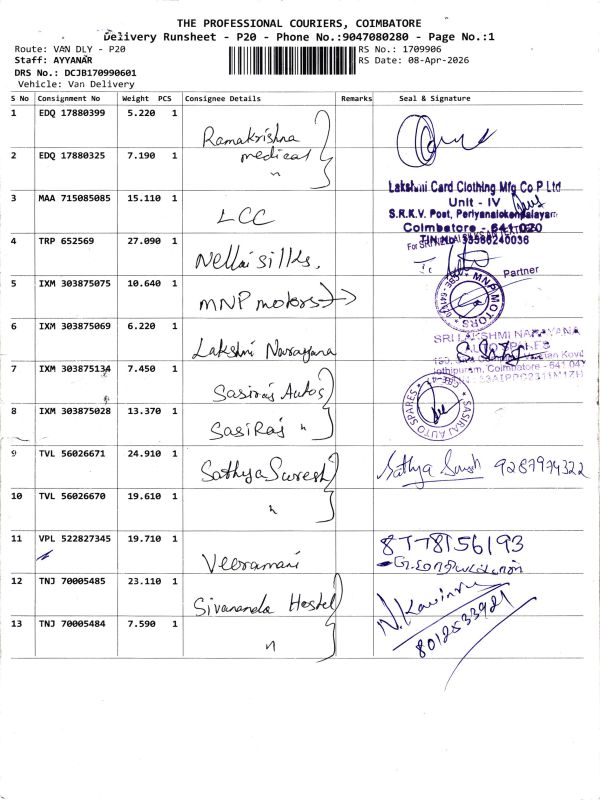 THE PROFESSIONAL COURIERS, COIMBATORE
Delivery Runsheet - P20 - Phone No.:9047080280 - Page No.:1
Route: VAN DLY - P20
RS No.: 1709906
Staff: AYYANAR
RS Date: 08-Apr-2026
DRS No.: DCJB170990601
Vehicle: Van Delivery
S No Consignment No Weight PCS Consignee Details Remarks Seal & Signature
1 EDQ 17880399 5.220 1 Ramakrishna
medical
2 EDQ 17880325 7.190 1 "
3 MAA 715085085 15.110 1 LCC
Lakshmi Card Clothing Mfg Co P Ltd
Unit - IV
S.R.K.V. Post, Periyanaickenpalayam
Coimbatore - 641 020
TIN No 33586240036
4 TRP 652569 27.090 1 Nellai silks.
Partner
5 IXM 303875075 10.640 1 MNP motors
MNP MOTORS
6 IXM 303875069 6.220 1 Lakshmi Narayana
SRI LAKSHMI NARAYANA
AUTO SPARES
7 IXM 303875134 7.450 1 Sasiraj Autos
SASIRAJ AUTO SPARES
8 IXM 303875028 13.370 1 SasiRaj "
9 TVL 56026671 24.910 1 Sathya Suresh
Sathya Suresh 9287974322
10 TVL 56026670 19.610 1 "
11 VPL 522827345 19.710 1 Veeramani
8778156193
12 TNJ 70005485 23.110 1 Sivananda Hostel
13 TNJ 70005484 7.590 1 "
8012533921